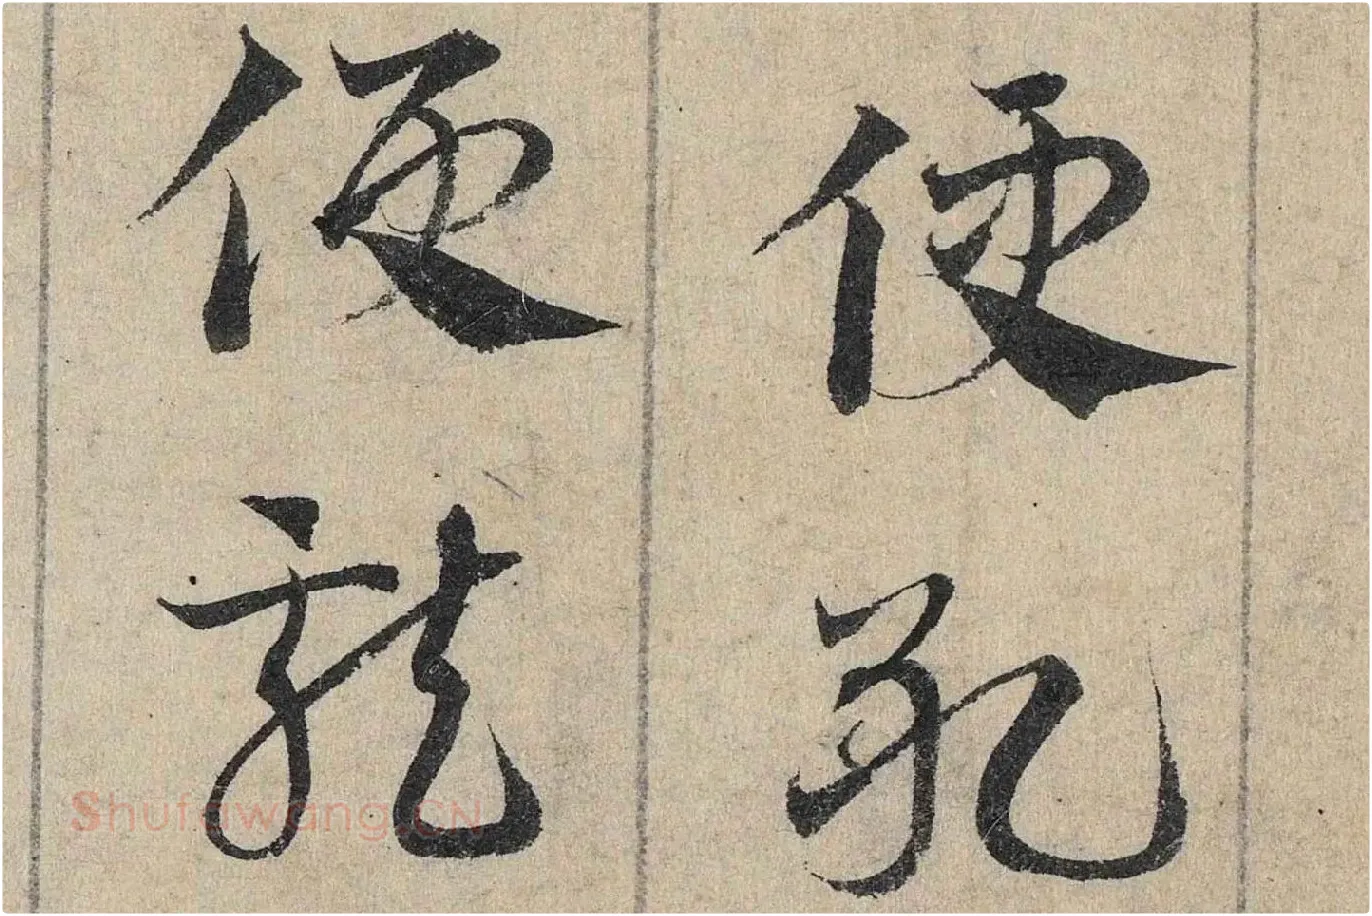 便
便龍
Shufawang.CN